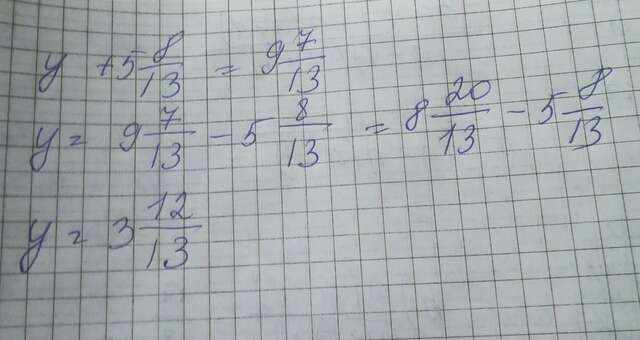 y + 5 8/13 = 9 7/13
y = 9 7/13 - 5 8/13 = 8 20/13 - 5 8/13
y = 3 12/13